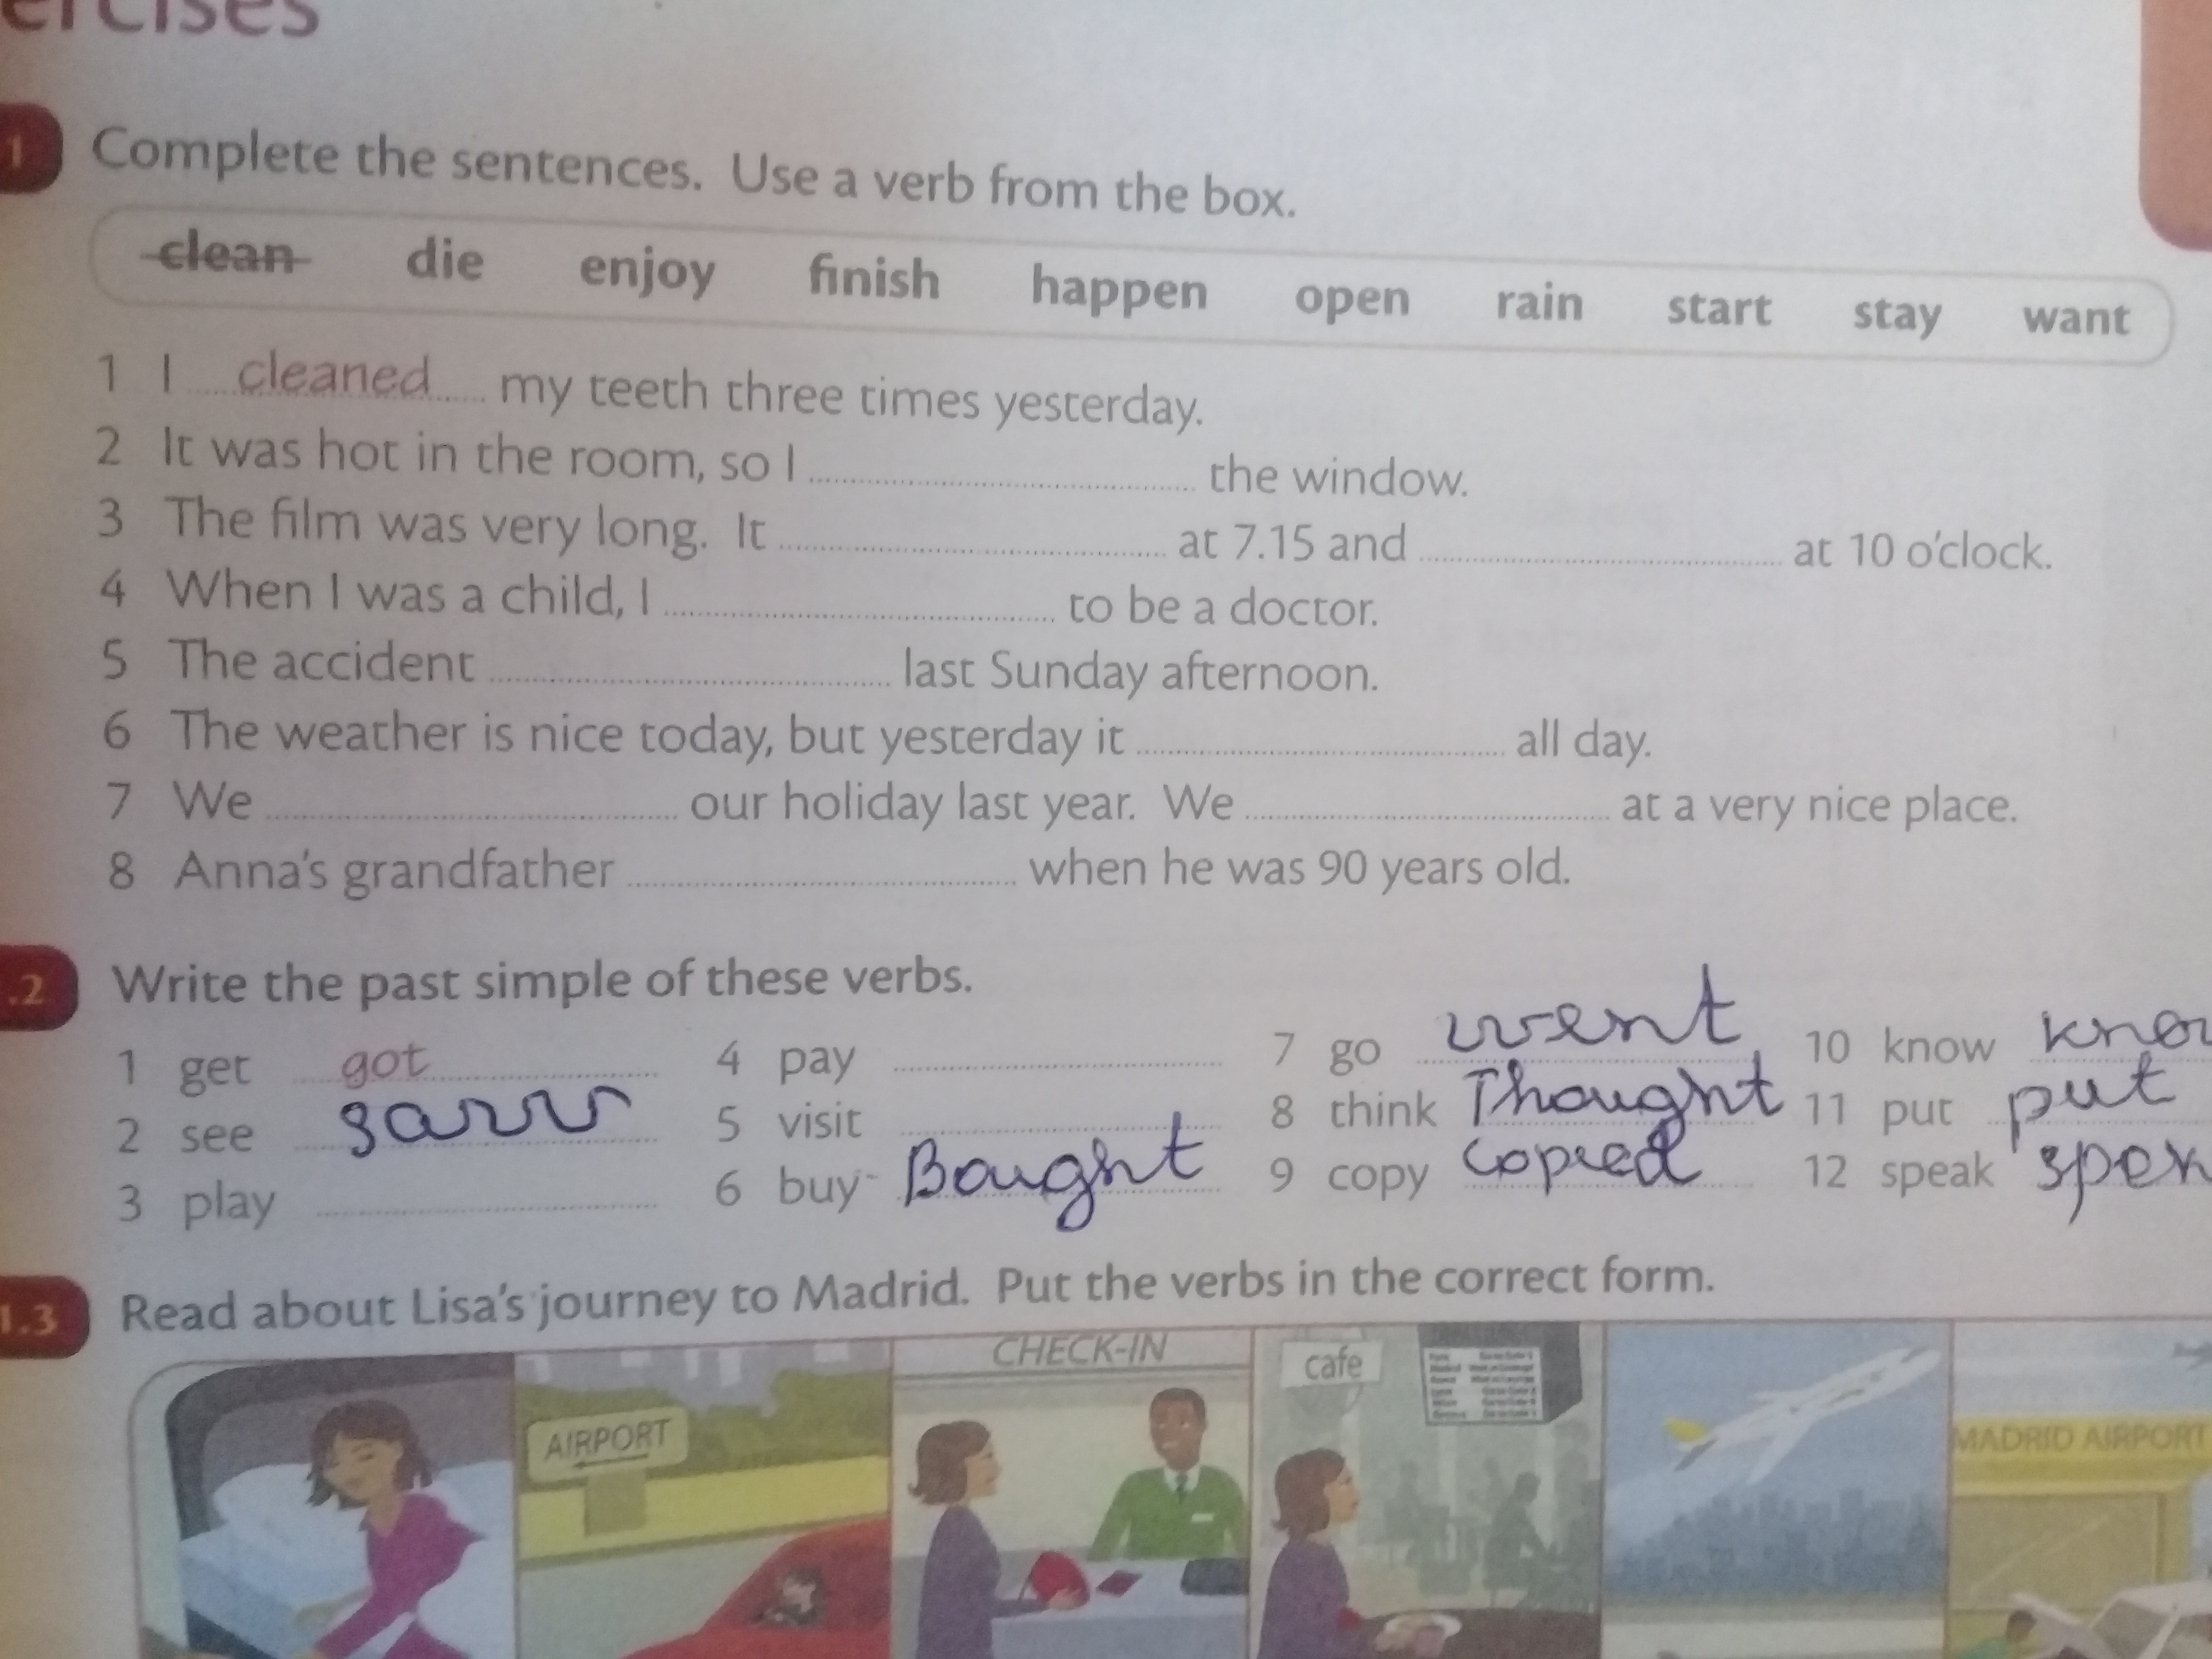 ercises
1 Complete the sentences. Use a verb from the box.
clean die enjoy finish happen open rain start stay want
1 I cleaned my teeth three times yesterday.
2 It was hot in the room, so I the window.
3 The film was very long. It at 7.15 and at 10 o'clock.
4 When I was a child, I to be a doctor.
5 The accident last Sunday afternoon.
6 The weather is nice today, but yesterday it all day.
7 We our holiday last year. We at a very nice place.
8 Anna's grandfather when he was 90 years old.
.2 Write the past simple of these verbs.
1 get got 4 pay 7 go went 10 know kno
2 see saw 5 visit 8 think Thought 11 put put
3 play 6 buy Bought 9 copy copied 12 speak
1.3 Read about Lisa's journey to Madrid. Put the verbs in the correct form.
AIRPORT
CHECK-IN
cafe
MADRID AIRPORT